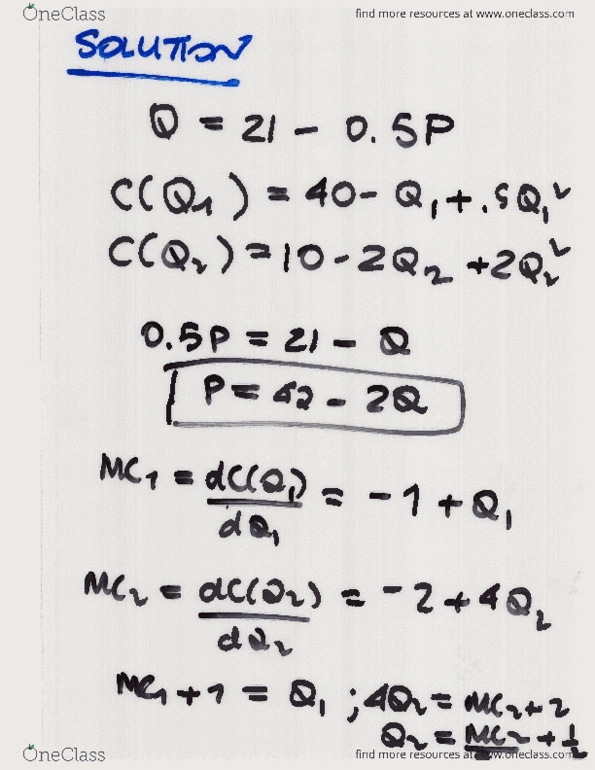 OneClass
find more resources at www.oneclass.com
SOLUTION
Q = 21 - 0.5P
C(Q₁) = 40 - Q₁ + .5Q₁²
C(Q₂) = 10 - 2Q₂ + 2Q₂²
0.5P = 21 - Q
P = 42 - 2Q
MC₁ = dC(Q₁)/dQ₁ = -1 + Q₁
MC₂ = dC(Q₂)/dQ₂ = -2 + 4Q₂
MC₁ + 1 = Q₁ ; 4Q₂ = MC₂ + 2
Q₂ = MC₂ + 1/2
OneClass
find more resources at www.oneclass.com